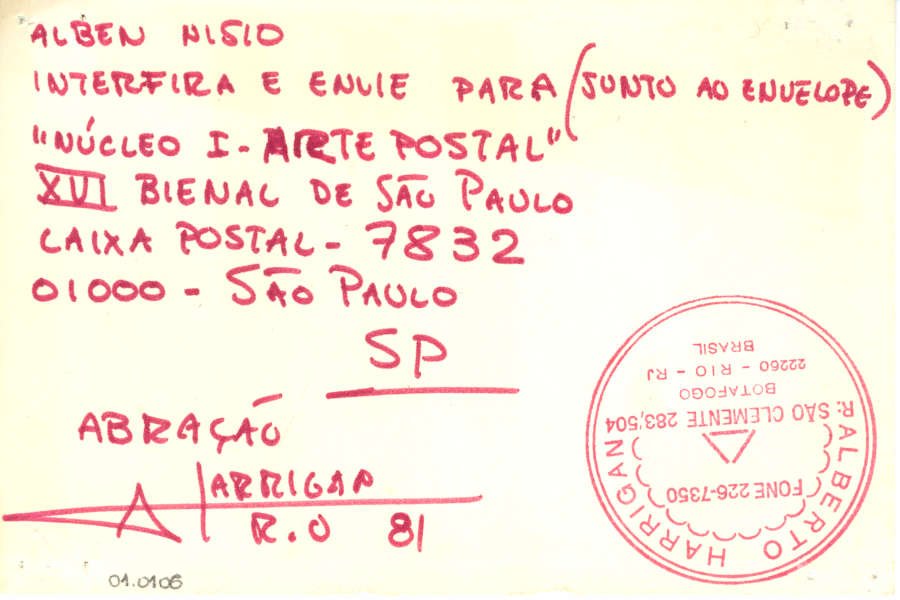 ALBEN NISIO
INTERFIRA E ENVIE PARA (JUNTO AO ENVELOPE)
"NÚCLEO I - ARTE POSTAL"
XVI BIENAL DE SÃO PAULO
CAIXA POSTAL - 7832
01000 - SÃO PAULO
SP
ABRAÇÃO
HARRIGAN
RIO 81
01.0106
R. ALBERTO HARRIGAN
FONE 226-7350
R. SÃO CLEMENTE 283/504
BOTAFOGO
22260 - RIO - RJ
BRASIL